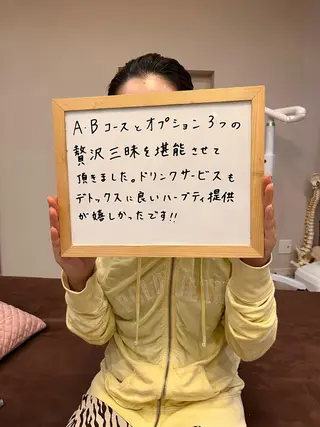 A・Bコースとオプション3つの
贅沢三昧を堪能させて
頂きました。ドリンクサービスも
デトックスに良いハーブティ提供
が嬉しかったです!!